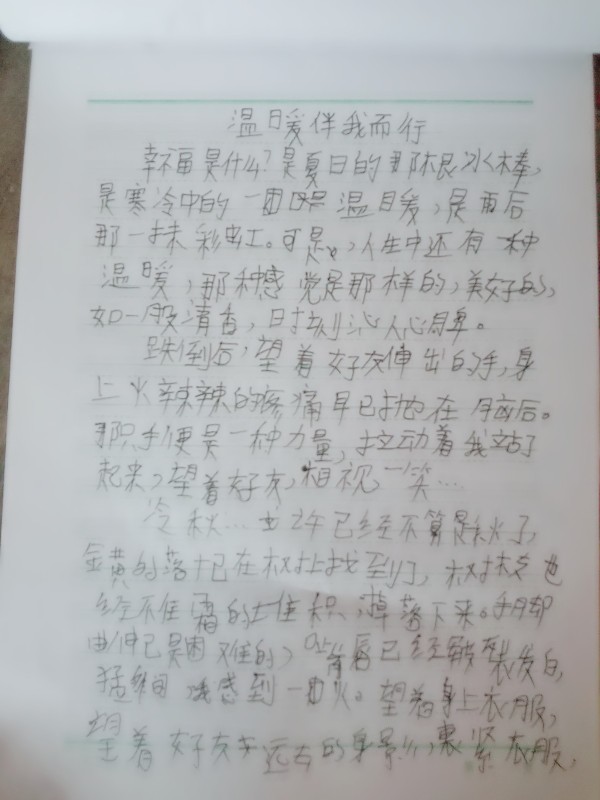 温暖伴我而行
幸福是什么?是夏日的那根冰棒,
是寒冷中的一口温暖,是雨后
那一抹彩虹。可是,人生中还有一种
温暖,那种感觉是那样的,美好的,
如一股清香,时刻沁人心脾。
跌倒后,望着好友伸出的手,身
上火辣辣的疼痛早已抛在脑后。
那只手便是一种力量,拉动着我站了
起来,望着好友,相视一笑…
冷秋…也许已经不算是秋了,
金黄的落叶已在树上找不到了,树枝也
经不住霜的堆积,掉落下来。手却
曲伸已是困难的,嘴唇已经皲裂发白,
猛然间感到一团火。望着身上衣服,
望着好友远去的身影,裹紧衣服,